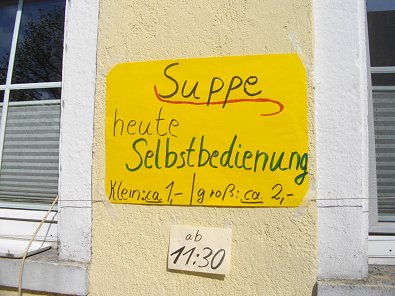 Suppe
heute
Selbstbedienung
Klein: ca 1,- | groß: ca. 2,-
ab
11:30